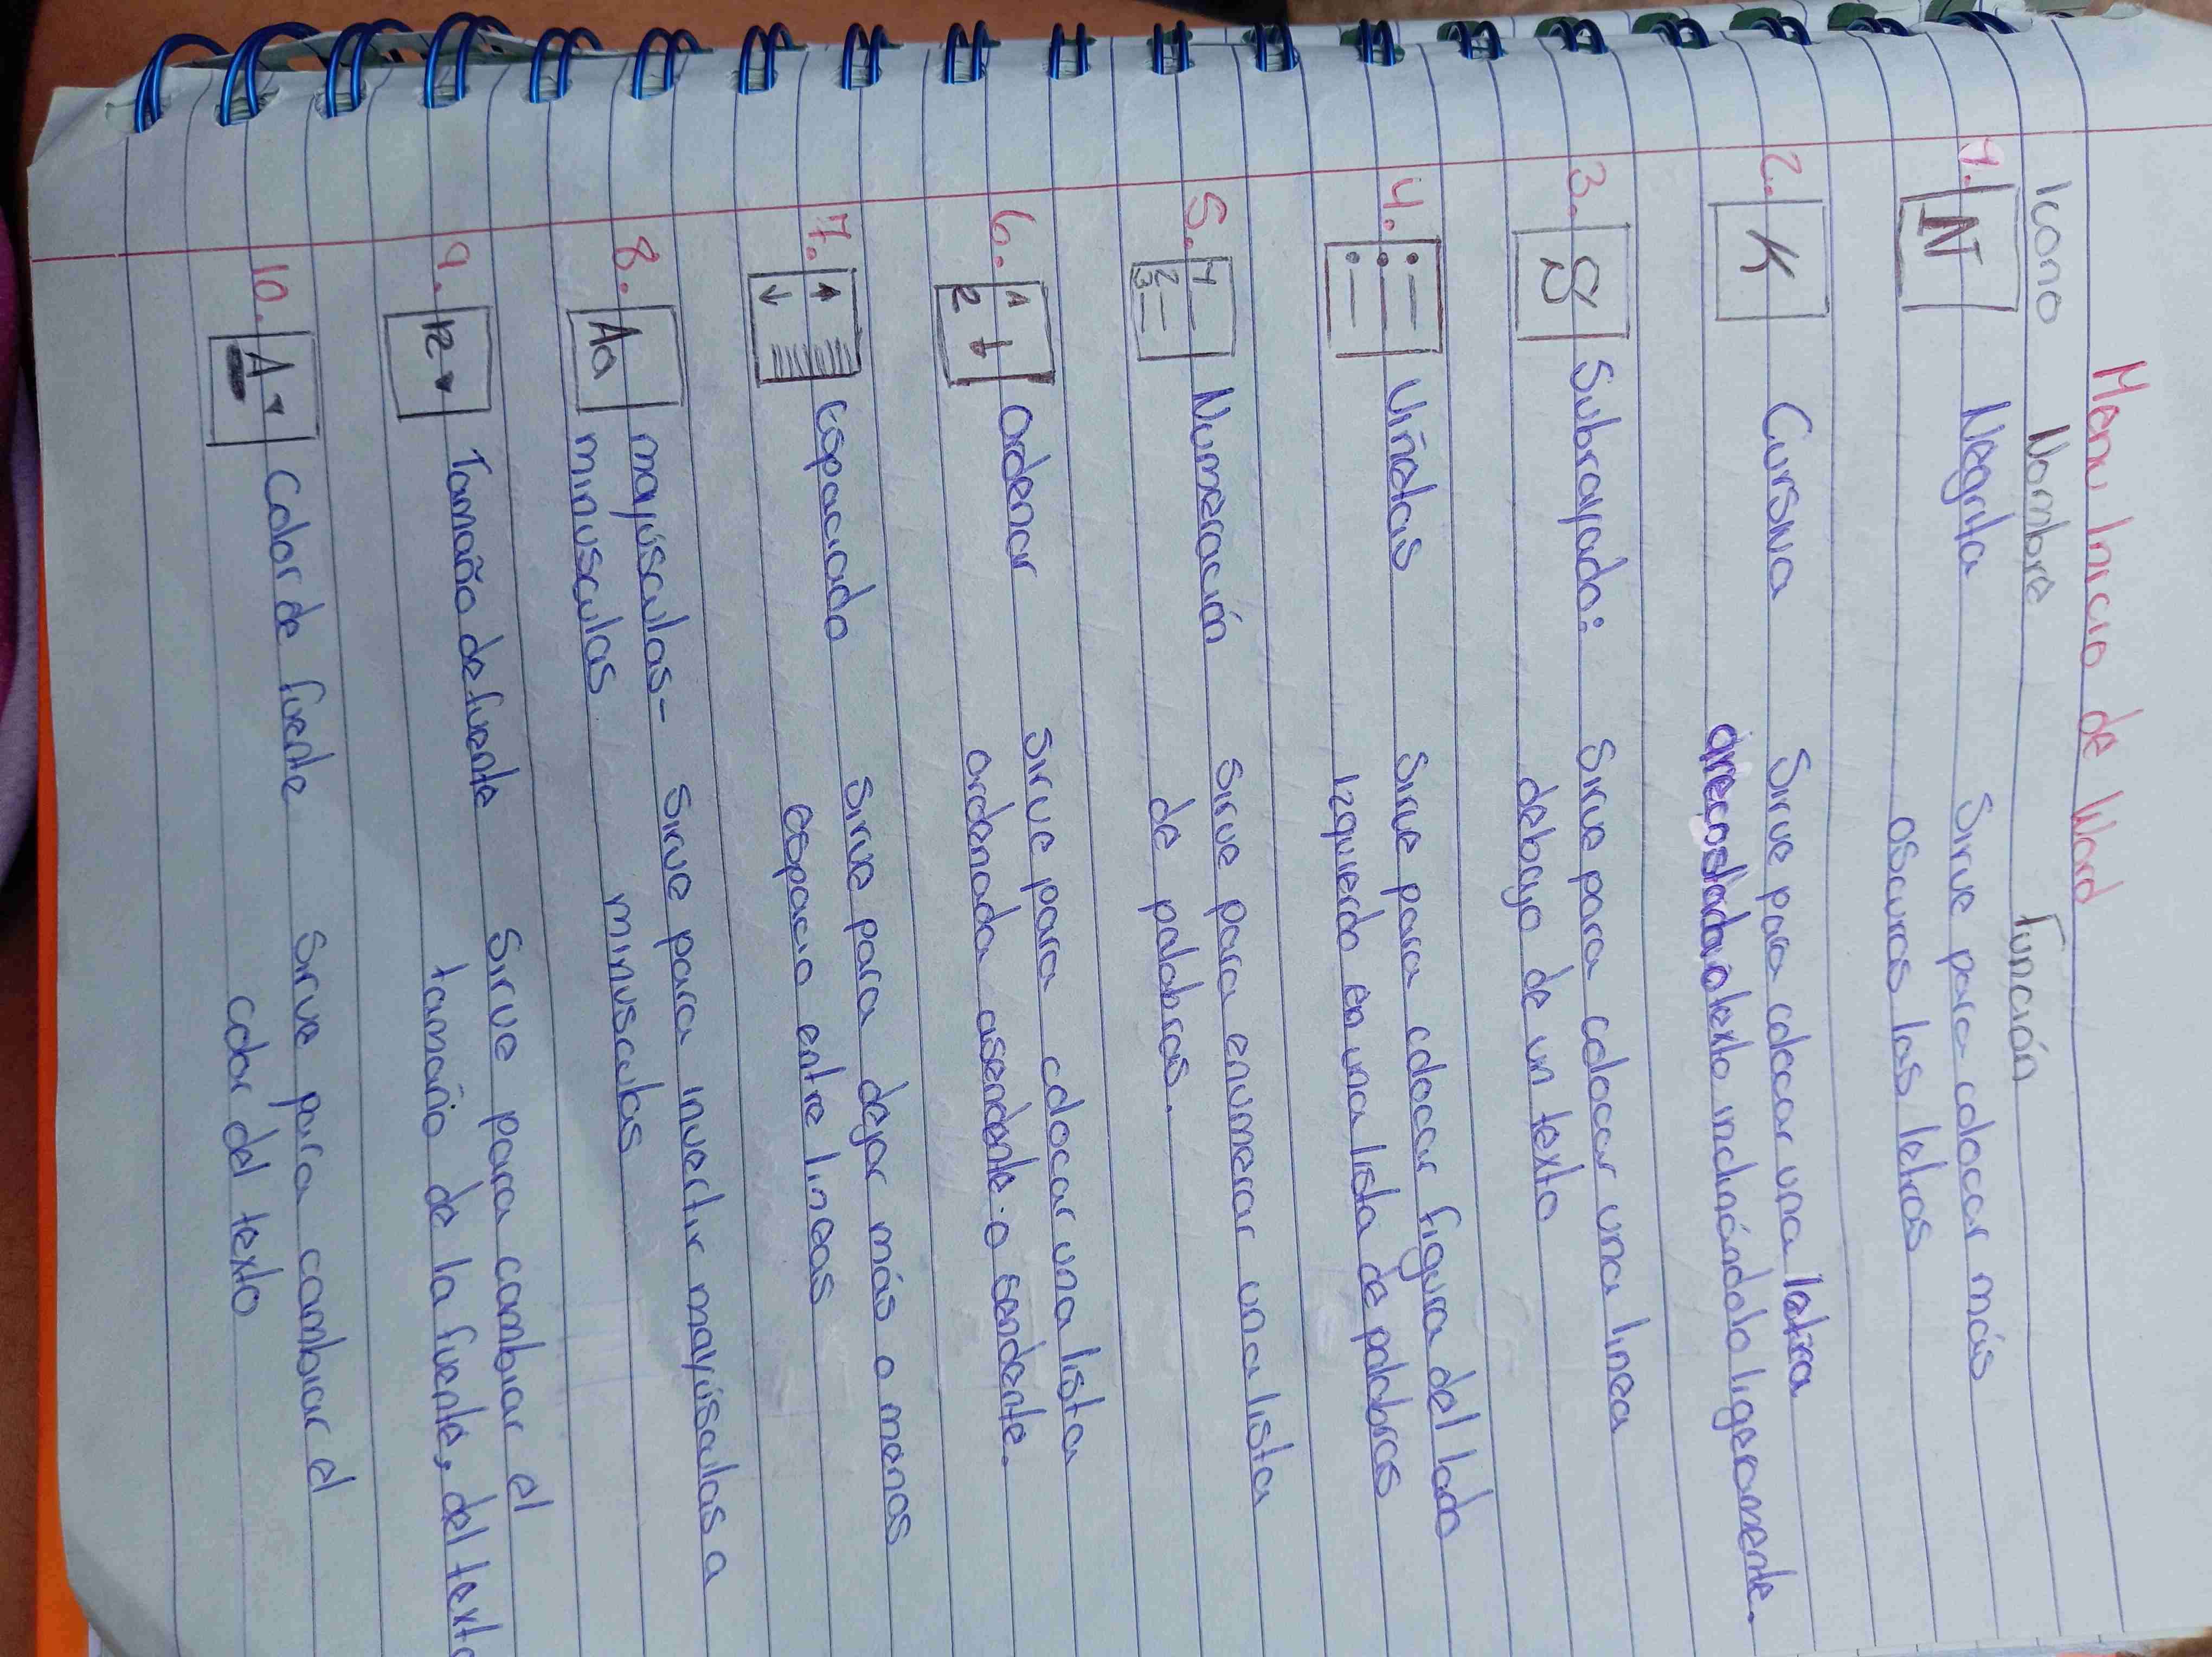 Menu Inicio de Word
Icono Nombre Función
1. N Negrita Sirve para colocar más
oscuras las letras
2. K Cursiva Sirve para colocar una letra
arecostada o lexto inclinándolo ligeramente.
3. S Subrayado: Sirve para colocar una linea
debajo de un texto
4. Viñedas Sirve para colocar figura del lado
Izquierdo en una lista de palabras
5. 1 2 3 Numeración Sirve para enumerar una lista
de palabras.
6. A Z Ordenar Sirve para colocar una lista
ordenada asendente o sendente.
7. Espaciado Sirve para dejar más o menos
espacio entre lineas
8. Aa mayúsculas- Sirve para invertir mayúsculas a
minusculas minusculas
9. 12 Tamaño de fuente Sirve para cambiar el
tamaño de la fuente, del texto
10. A Color de fuente Sirve para cambiar el
color del texto